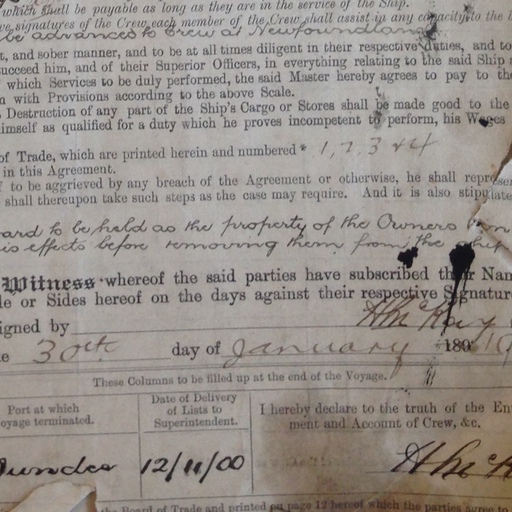 which shall be payable as long as they are in the service of the Ship.
ve signatures of the Crew, each member of the Crew shall assist in any capacity to the
be advanced to Crew at Newfoundland
t, and sober manner, and to be at all times diligent in their respective duties, and to
succeed him, and of their Superior Officers, in everything relating to the said Ship
which Services to be duly performed, the said Master hereby agrees to pay to the
n with Provisions according to the above Scale.
Destruction of any part of the Ship's Cargo or Stores shall be made good to the
imself as qualified for a duty which he proves incompetent to perform, his Wages
of Trade, which are printed herein and numbered* 1, 2, 3 & 4
in this Agreement.
to be aggrieved by any breach of the Agreement or otherwise, he shall represen
shall thereupon take such steps as the case may require. And it is also stipulate
ard to be held as the property of the Owners
is effects before removing them from the ship
Witness whereof the said parties have subscribed their Nam
le or Sides hereof on the days against their respective Signature
igned by H McKay
e 30th day of January 189
These Columns to be filled up at the end of the Voyage.
Port at which
oyage terminated.
Date of Delivery
of Lists to
Superintendent.
I hereby declare to the truth of the En
ment and Account of Crew, &c.
Dundee 12/11/00 H McK
the Board of Trade and printed on page 12 hereof which the parties agree to